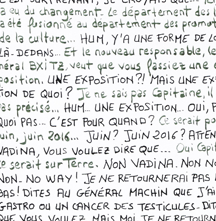 A EU DU CHANGEMENT. LE DÉPARTEMENT DONT
A ÉTÉ FUSIONNÉ AU DÉPARTEMENT DES PROMOT
DE LA CULTURE... HUM, Y'A UNE FORME DE LO
LÀ-DEDANS... Et le nouveau responsable, le
néral BXiTZ, veut que vous fassiez une e
position. UNE EXPOSITION?! MAIS UNE EX
TION DE QUOI? Je ne sais pas Capitaine, il
pas précisé... HUM... UNE EXPOSITION... OUI, P
QUOI PAS... C'EST POUR QUAND? Ce serait po
uin, juin 2016... JUIN? JUIN 2016? ATTEN
VADINA, VOUS VOULEZ DIRE QUE... Oui Capit
Ce serait sur Terre. NON VADINA. NON NO
NON. NO WAY! JE NE RETOURNERAI PAS L
BAS! DITES AU GÉNÉRAL MACHIN QUE J'AI
GASTRO OU UN CANCER DES TESTICULES. DIT
QUE VOUS VOULEZ MAIS MOI JE NE RETOURN